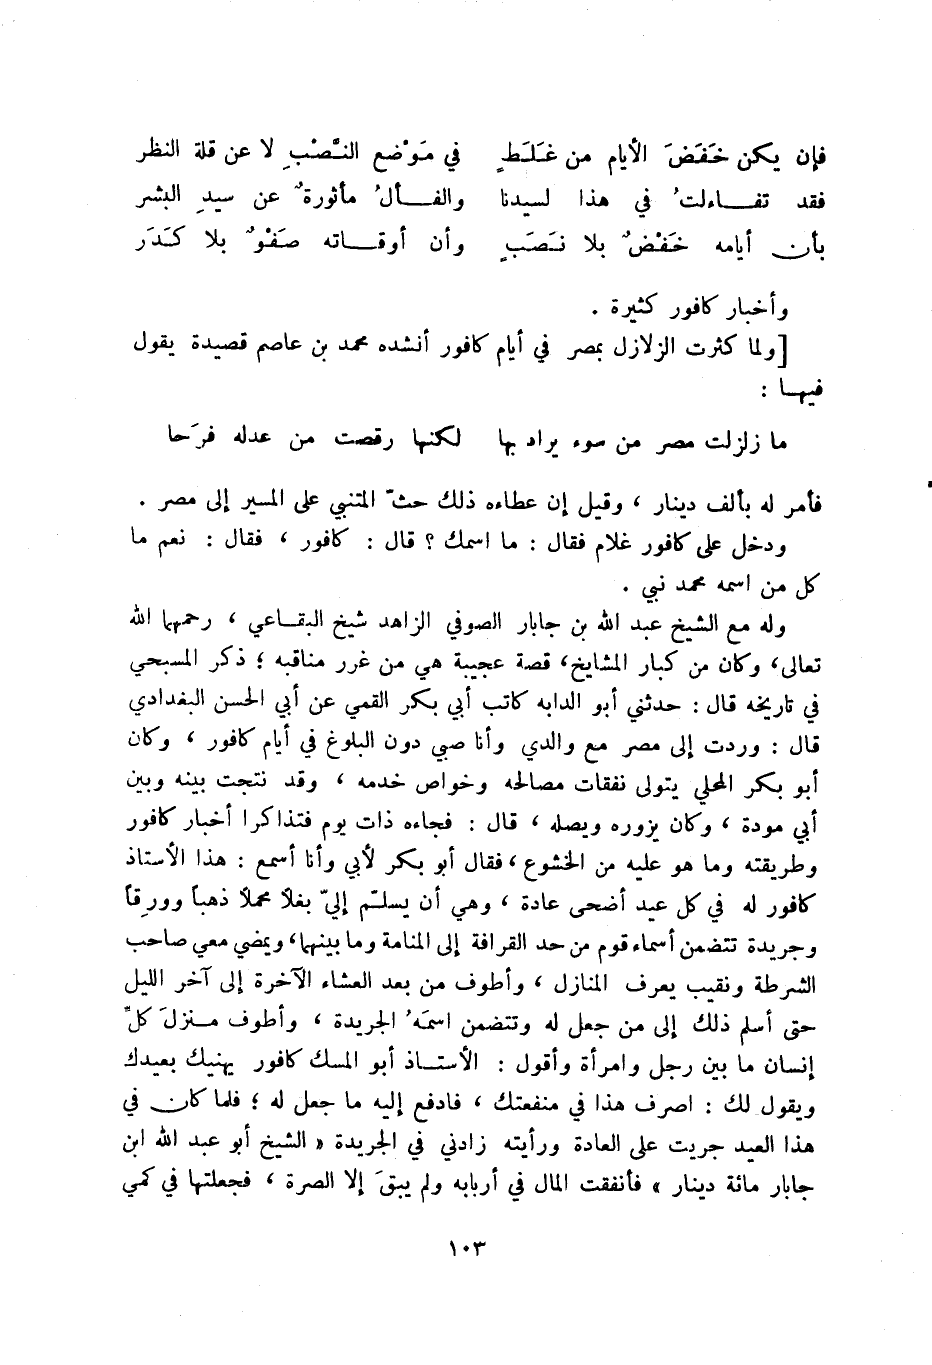 فإن يكن خَفَضَ الأيام من غَلَطٍ في مَوْضع النَّصْبِ لا عن قلة النظر
فقد تفاءلتُ في هذا لسيدنا والفألُ مأثورةٌ عن سيدِ البشر
بأن أيامه خَفْضٌ بلا نَصَبٍ وأن أوقاته صَفْوٌ بلا كَدَر
وأخبار كافور كثيرة .
[ولما كثرت الزلازل بمصر في أيام كافور أنشده محمد بن عاصم قصيدة يقول
فيها :
ما زلزلت مصر من سوء يراد بها لكنها رقصت من عدله فرَحا
فأمر له بألف دينار ، وقيل إن عطاءه ذلك حثّ المتنبي على المسير إلى مصر .
ودخل على كافور غلام فقال : ما اسمك ؟ قال : كافور ، فقال : نعم ما
كل من اسمه محمد نبي .
وله مع الشيخ عبد الله بن جابار الصوفي الزاهد شيخ البقاعي ، رحمهما الله
تعالى، وكان من كبار المشايخ، قصة عجيبة هي من غرر مناقبه ؛ ذكر المسبحي
في تاريخه قال : حدثني أبو الدابه كاتب أبي بكر القمي عن أبي الحسن البغدادي
قال : وردت إلى مصر مع والدي وأنا صبي دون البلوغ في أيام كافور ، وكان
أبو بكر المحلي يتولى نفقات مصالحه وخواص خدمه ، وقد نتجت بينه وبين
أبي مودة ، وكان يزوره ويصله ، قال : فجاءه ذات يوم فتذاكرا أخبار كافور
وطريقته وما هو عليه من الخشوع ، فقال أبو بكر لأبي وأنا أسمع : هذا الأستاذ
كافور له في كل عيد أضحى عادة ، وهي أن يسلّم إليّ بغلاً محملاً ذهباً وورِقاً
وجريدة تتضمن أسماء قوم من حد القرافة إلى المنامة وما بينهما، ويمضي معي صاحب
الشرطة ونقيب يعرف المنازل ، وأطوف من بعد العشاء الآخرة إلى آخر الليل
حتى أسلم ذلك إلى من جعل له وتتضمن اسمَهُ الجريدة ، وأطوف منزلَ كلِّ
إنسان ما بين رجل وامرأة وأقول : الأستاذ أبو المسك كافور يهنيك بعيدك
ويقول لك : اصرف هذا في منفعتك ، فادفع إليه ما جعل له ؛ فلما كان في
هذا العيد جريت على العادة ورأيته زادني في الجريدة « الشيخ أبو عبد الله ابن
جابار مائة دينار » فأنفقت المال في أربابه ولم يبقَ إلا الصرة ، فجعلتها في كمي
١٠٣